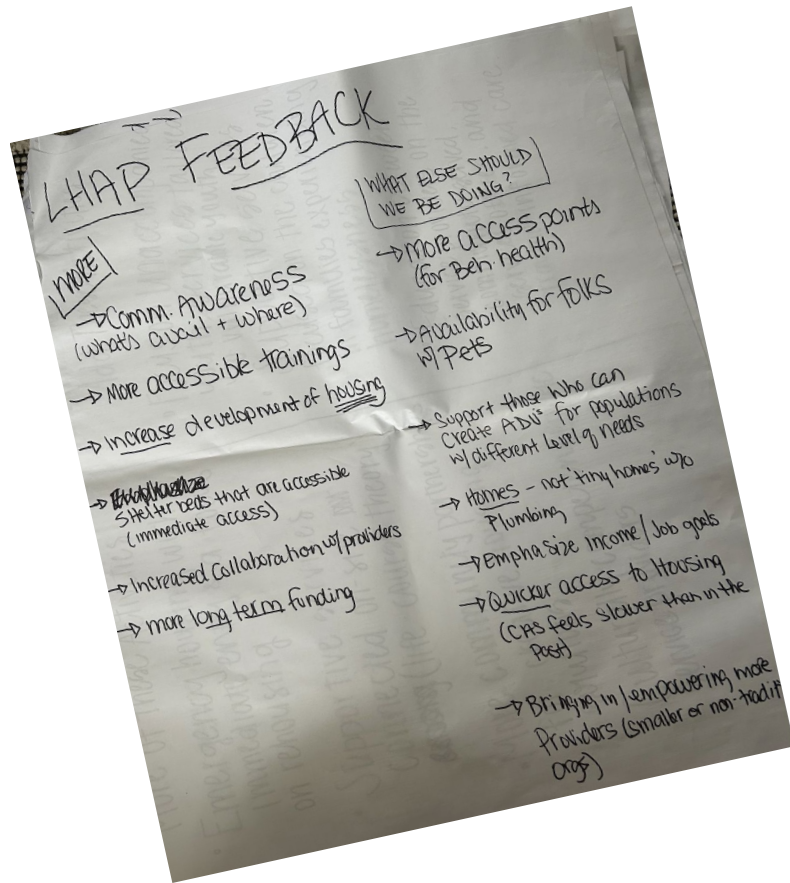 LHAP FEEDBACK
MORE
→ Comm. Awareness
(what's avail + where)
→ More accessible trainings
→ Increase development of housing
→ Shelter beds that are accessible
(immediate access)
→ Increased Collaboration w/ providers
→ more long term funding
WHAT ELSE SHOULD
WE BE DOING?
→ More access points
(for Beh. health)
→ Availability for folks
w/ Pets
→ Support those who can
create ADU's for populations
w/ different level of needs
→ Homes - not 'tiny homes' w/o
Plumbing
→ Emphasize Income / Job goals
→ Quicker access to Housing
(CAS feels slower than in the
past)
→ Bringing in / empowering more
Providers (smaller or non-tradit
orgs)